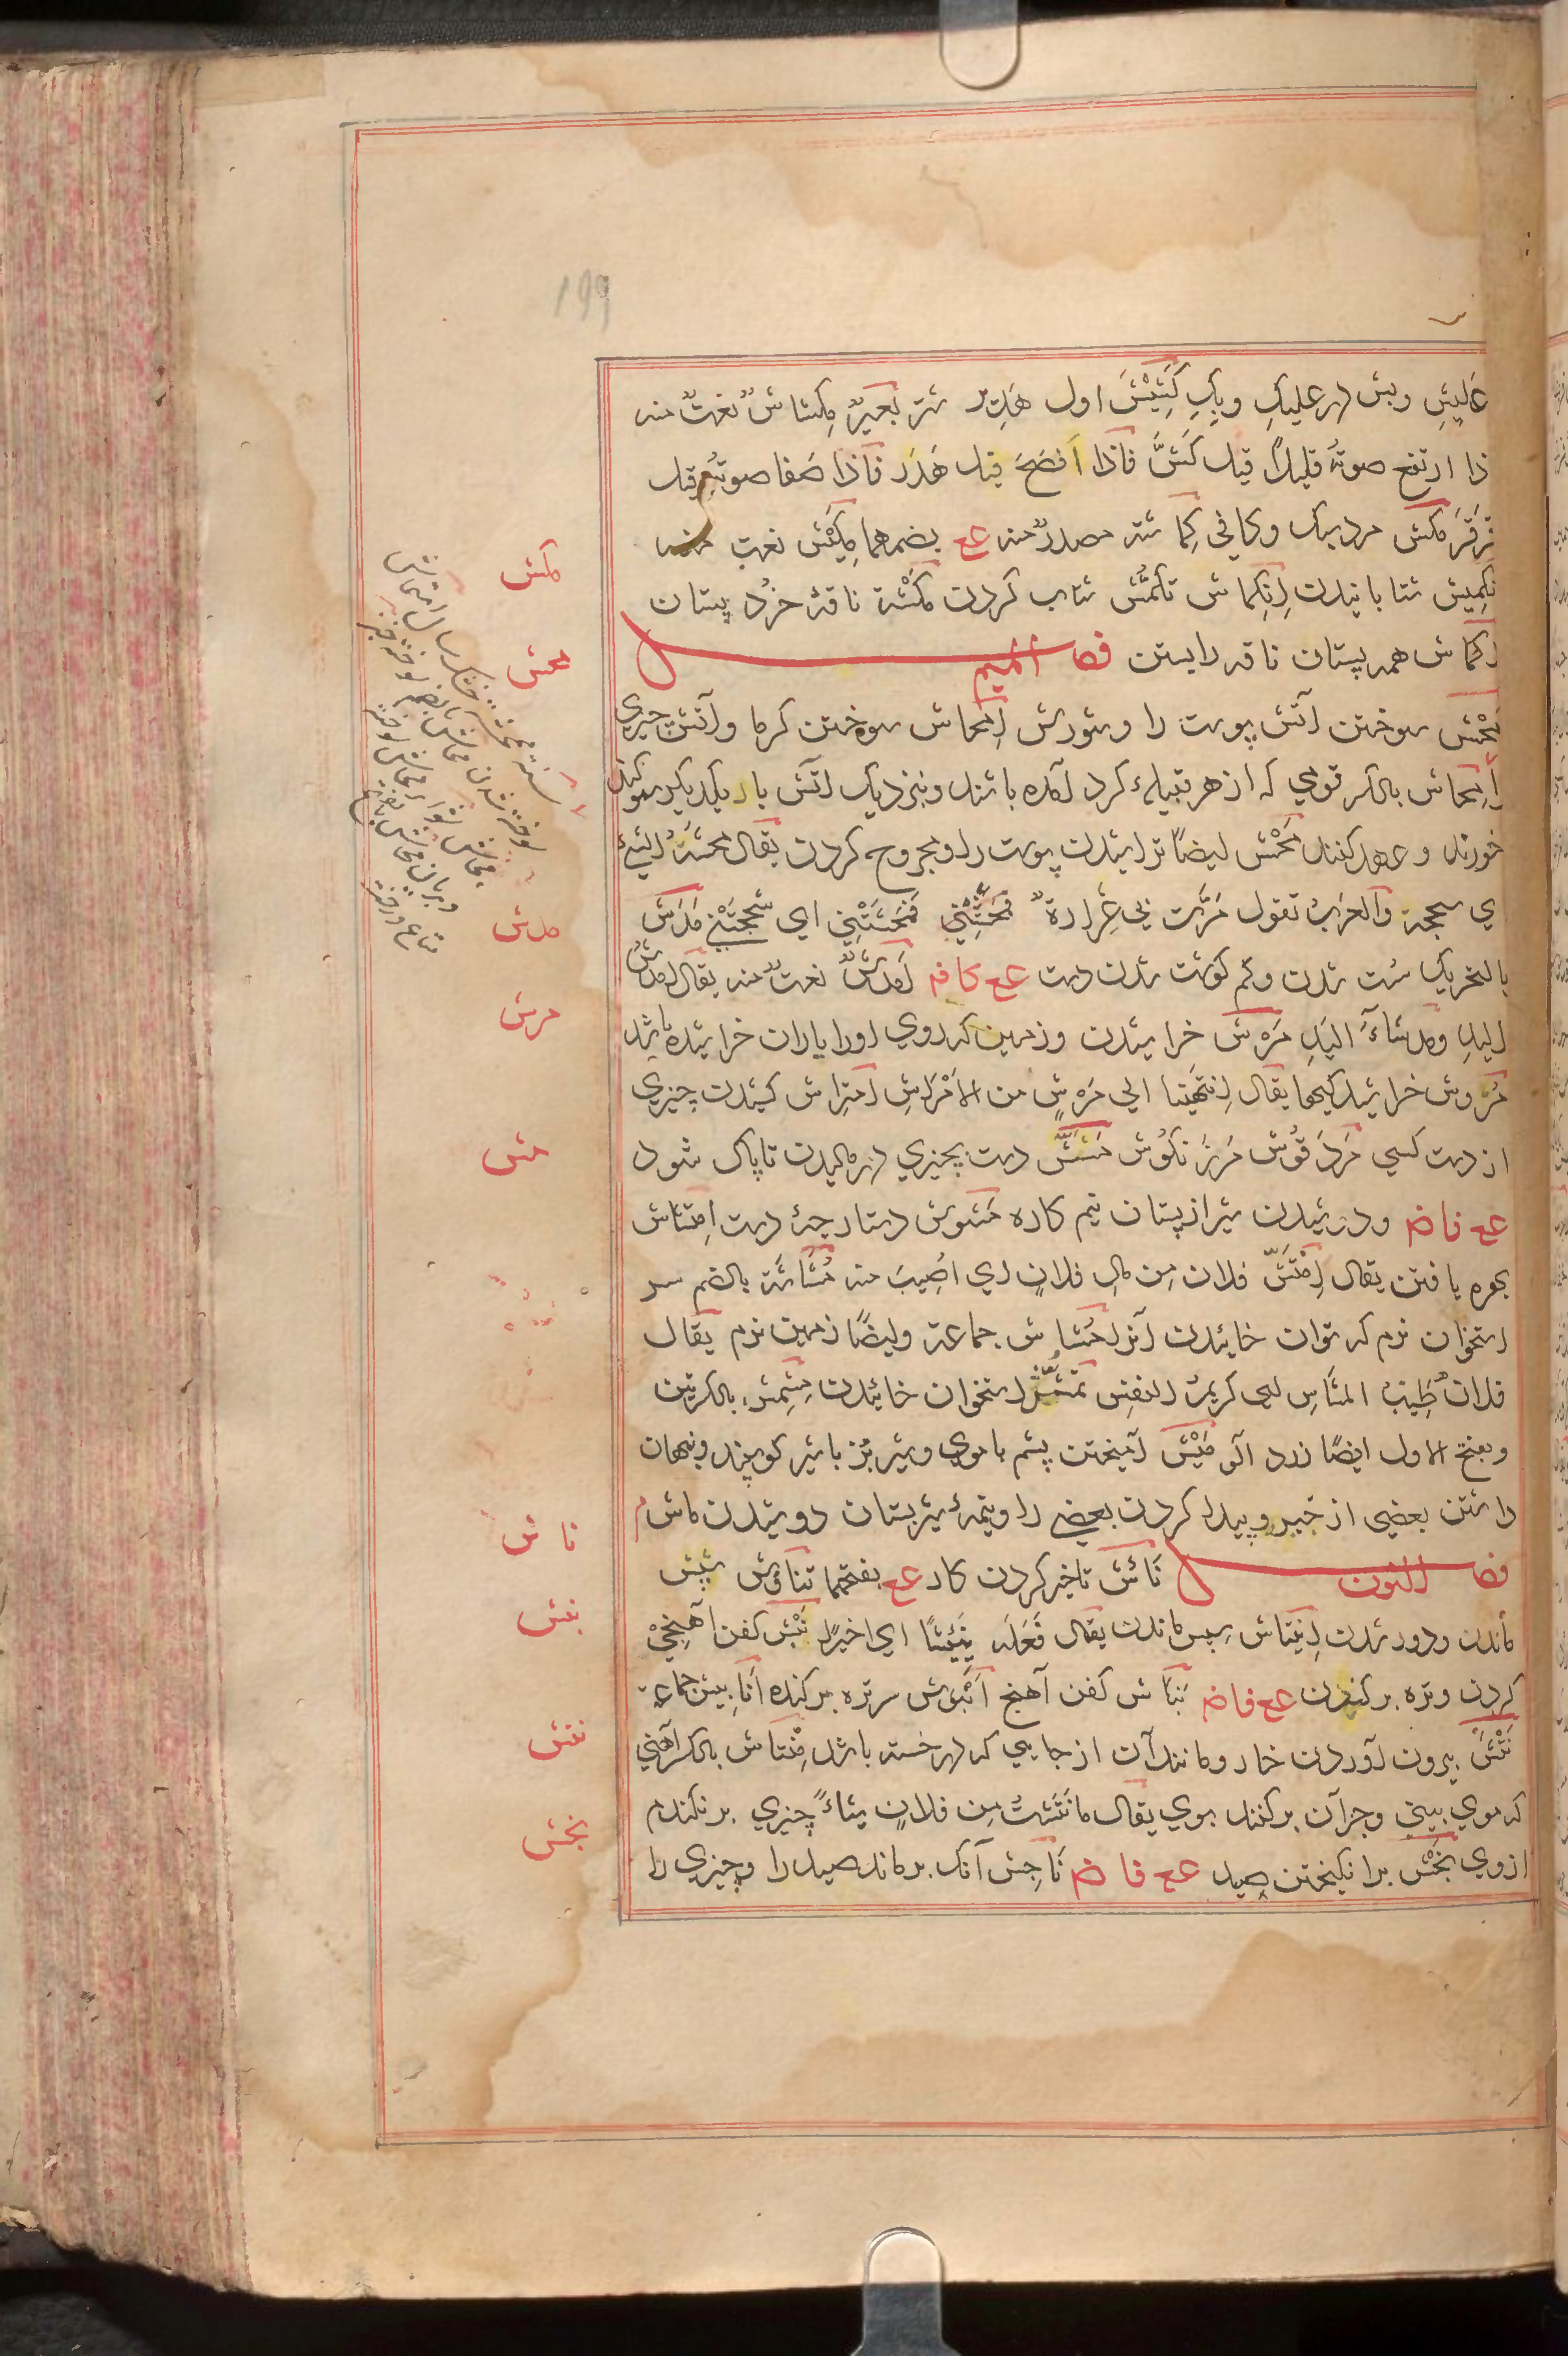 199
علیش وبش در علیک وبک کَشِیْشَ اول هَدِیر شتر بَعیرٌ مِکشاشٌ نعتٌ منه
ذا ارتفع صوتهُ قلیلاً قیل کَشَّ فاذا اَفصَحَ قیل هَدَر فاذا صَفا صوتُه قیل
قَرقَرَ کمش مرد سبک وکافی کِماشته مصدرٌ منه عع بضمهما کَمِیْش نعت منه
تکمیش شتابانیدن اِنکِماش تکمُّش شتاب کردن کَمْشَة ناقهٔ خرد پستان
اِکماش همه پستان ناقه را بستن فصل المیم
مَحْش سوختن آتش پوست را وشورش اِمحاش سوختن گرما وآتش چیزی
را مِحاش بالکسر قومی که از هر قبیلهٔ گرد آمده باشند ونزدیک آتش با یکدیگر سوگند
خورند وعهد کنند مَحْش ایضاً تراشیدن پوست را ومجروح کردن یقال مَحَشَهُ الشیءُ
ای سحجه والعرب تقول مَرَّت بی غِرارةٌ فمَحَشَتْنِی ای سَحَجَتْنی مَدَش
بالتحریک سست شدن وکم گوشت شدن دست عع کافه اَمدشٌ نعتٌ منه یقال اَمدشُ
الیدِ ومدشاءُ الیدِ مَرْش خراشیدن وزمین که روی اورا باران خراشیده باشد
مُرُوش خراشیدگیها یقال اِنتَهَیْنا الی مَرْشٍ من الاَمْراشِ اِمتِراش کشیدن چیزی
از دست کسی مَردَقُوش مَرزَنکوُش مَشّ دست بچیزی در مالیدن تا پاک شود
عع فاضه ودوشیدن شیر از پستان نیم کاره مَشُوش دستارچهٔ دست اِمتشاش
بهره یافتن یقال اِمْتَشَّ فلان مِن مالِ فلانٍ ای اُصِیبَ منه مُشاشَة بالضم سر
استخوان نرم که توان خائیدن آنرا مُشاش جماعة وایضاً زمین نرم یقال
فلانٌ طَیِّبُ المشاشِ ای کریمُ النفسِ تمشُّش استخوان خائیدن مِشمِش بالکسرتین
وبفتح الاول ایضاً زرد آلو مَیْش آمیختن پشم با موی وشیر بز با شیر گوسپند ونهان
داشتن بعضی از خبر وپیدا کردن بعضی را ونیمهٔ شیر پستان دوشیدن ماش م
فصل النون نَأش تاخیر کردن کار عع بفتحهما تناوُش سپس
ماندن ودور شدن اِنتیاش سپس ماندن یقال فَعَلَه نَئِیْشًا ای اخیراً نَبْش کفن آهنجی
کردن وتره برکندن عع فاضه نَبّاش کفن آهنج اُنْبُوش سر تره برکنده اَنابیش جماعة
نَتْش بیرون آوردن خار ومانند آن از جایی که در خسته باشد مِنْتاش بالکسر آهنی
که موی بینی وجز آن برکنند بوی یقال ما نَتَشتُ مِن فلانٍ شیئاً چیزی برنکندم
از وی نَجْش برانگیختن صید عع فاضه ناجِش آنکه برماند صید را وچیزی را
کمش
محش
مدش
مرش
مش
ناش
نبش
نتش
نجش